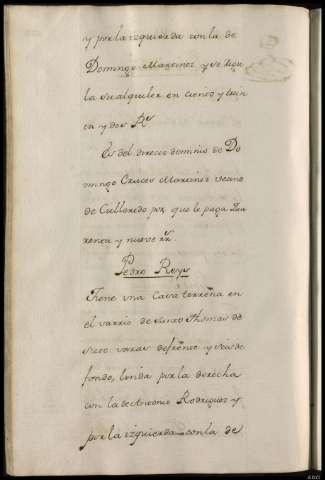 y por la izquierda con la de
Domingo Martinez y se regu
la su alquiler en ciento y trein
ta y dos R.s
Es del directo dominio de Do
mingo Martinez vecino
de por que le paga qua
renta y nueve rr.s
Pedro Royo
Tiene una Casa terreña en
el varrio de Santo Thomas de
siete varas de frente y seis de
fondo, linda por la derecha
con la de Antonio Rodriguez y
por la izquierda con la de